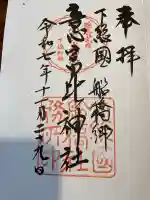 奉拝
下総國
船橋郷
意富比神社
令和七年十一月二十九日